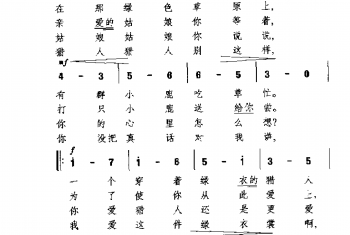 在那绿色草原上,
亲爱的姑娘你等着,
姑娘姑娘你说说,
猎人猎人别这样,
mf
4-3 5-6 6-5 3-0
有群小鹿吃草忙。
打只小鹿送给你尝。
你的心里怎么想?
你没把真话对我讲,
f
1-7 1-6 1-3 5
一个穿着绿衣的猎人
为了使你从此爱上,
你爱猎人还是更爱
我爱这件绿衣裳啊,